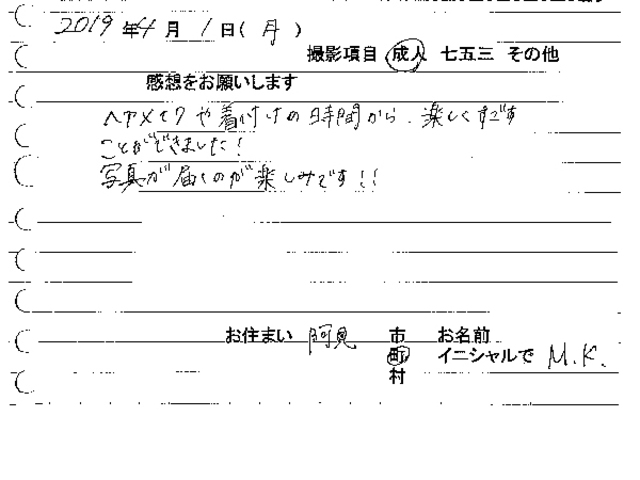 2019年4月1日(月)
撮影項目 成人 七五三 その他
感想をお願いします
ヘアメイクや着付けの時間から、楽しくすごす
ことができました!
写真が届くのが楽しみです!!
お住まい 阿見 市 お名前
町 イニシャルで M.K.
村